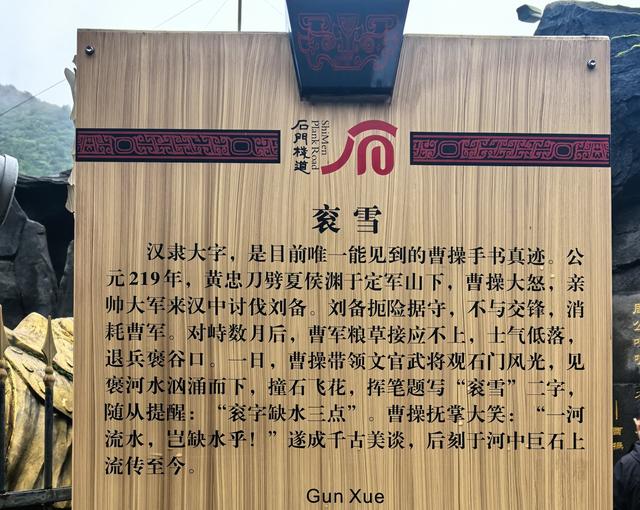 石門棧道
ShiMen
Plank Road
衮雪
汉隶大字，是目前唯一能见到的曹操手书真迹。公
元219年，黄忠刀劈夏侯渊于定军山下，曹操大怒，亲
帅大军来汉中讨伐刘备。刘备扼险据守，不与交锋，消
耗曹军。对峙数月后，曹军粮草接应不上，士气低落，
退兵褒谷口。一日，曹操带领文官武将观石门风光，见
褒河水汹涌而下，撞石飞花，挥笔题写“衮雪”二字，
随从提醒：“衮字缺水三点”。曹操抚掌大笑：“一河
流水，岂缺水乎！”遂成千古美谈，后刻于河中巨石上
流传至今。
Gun Xue